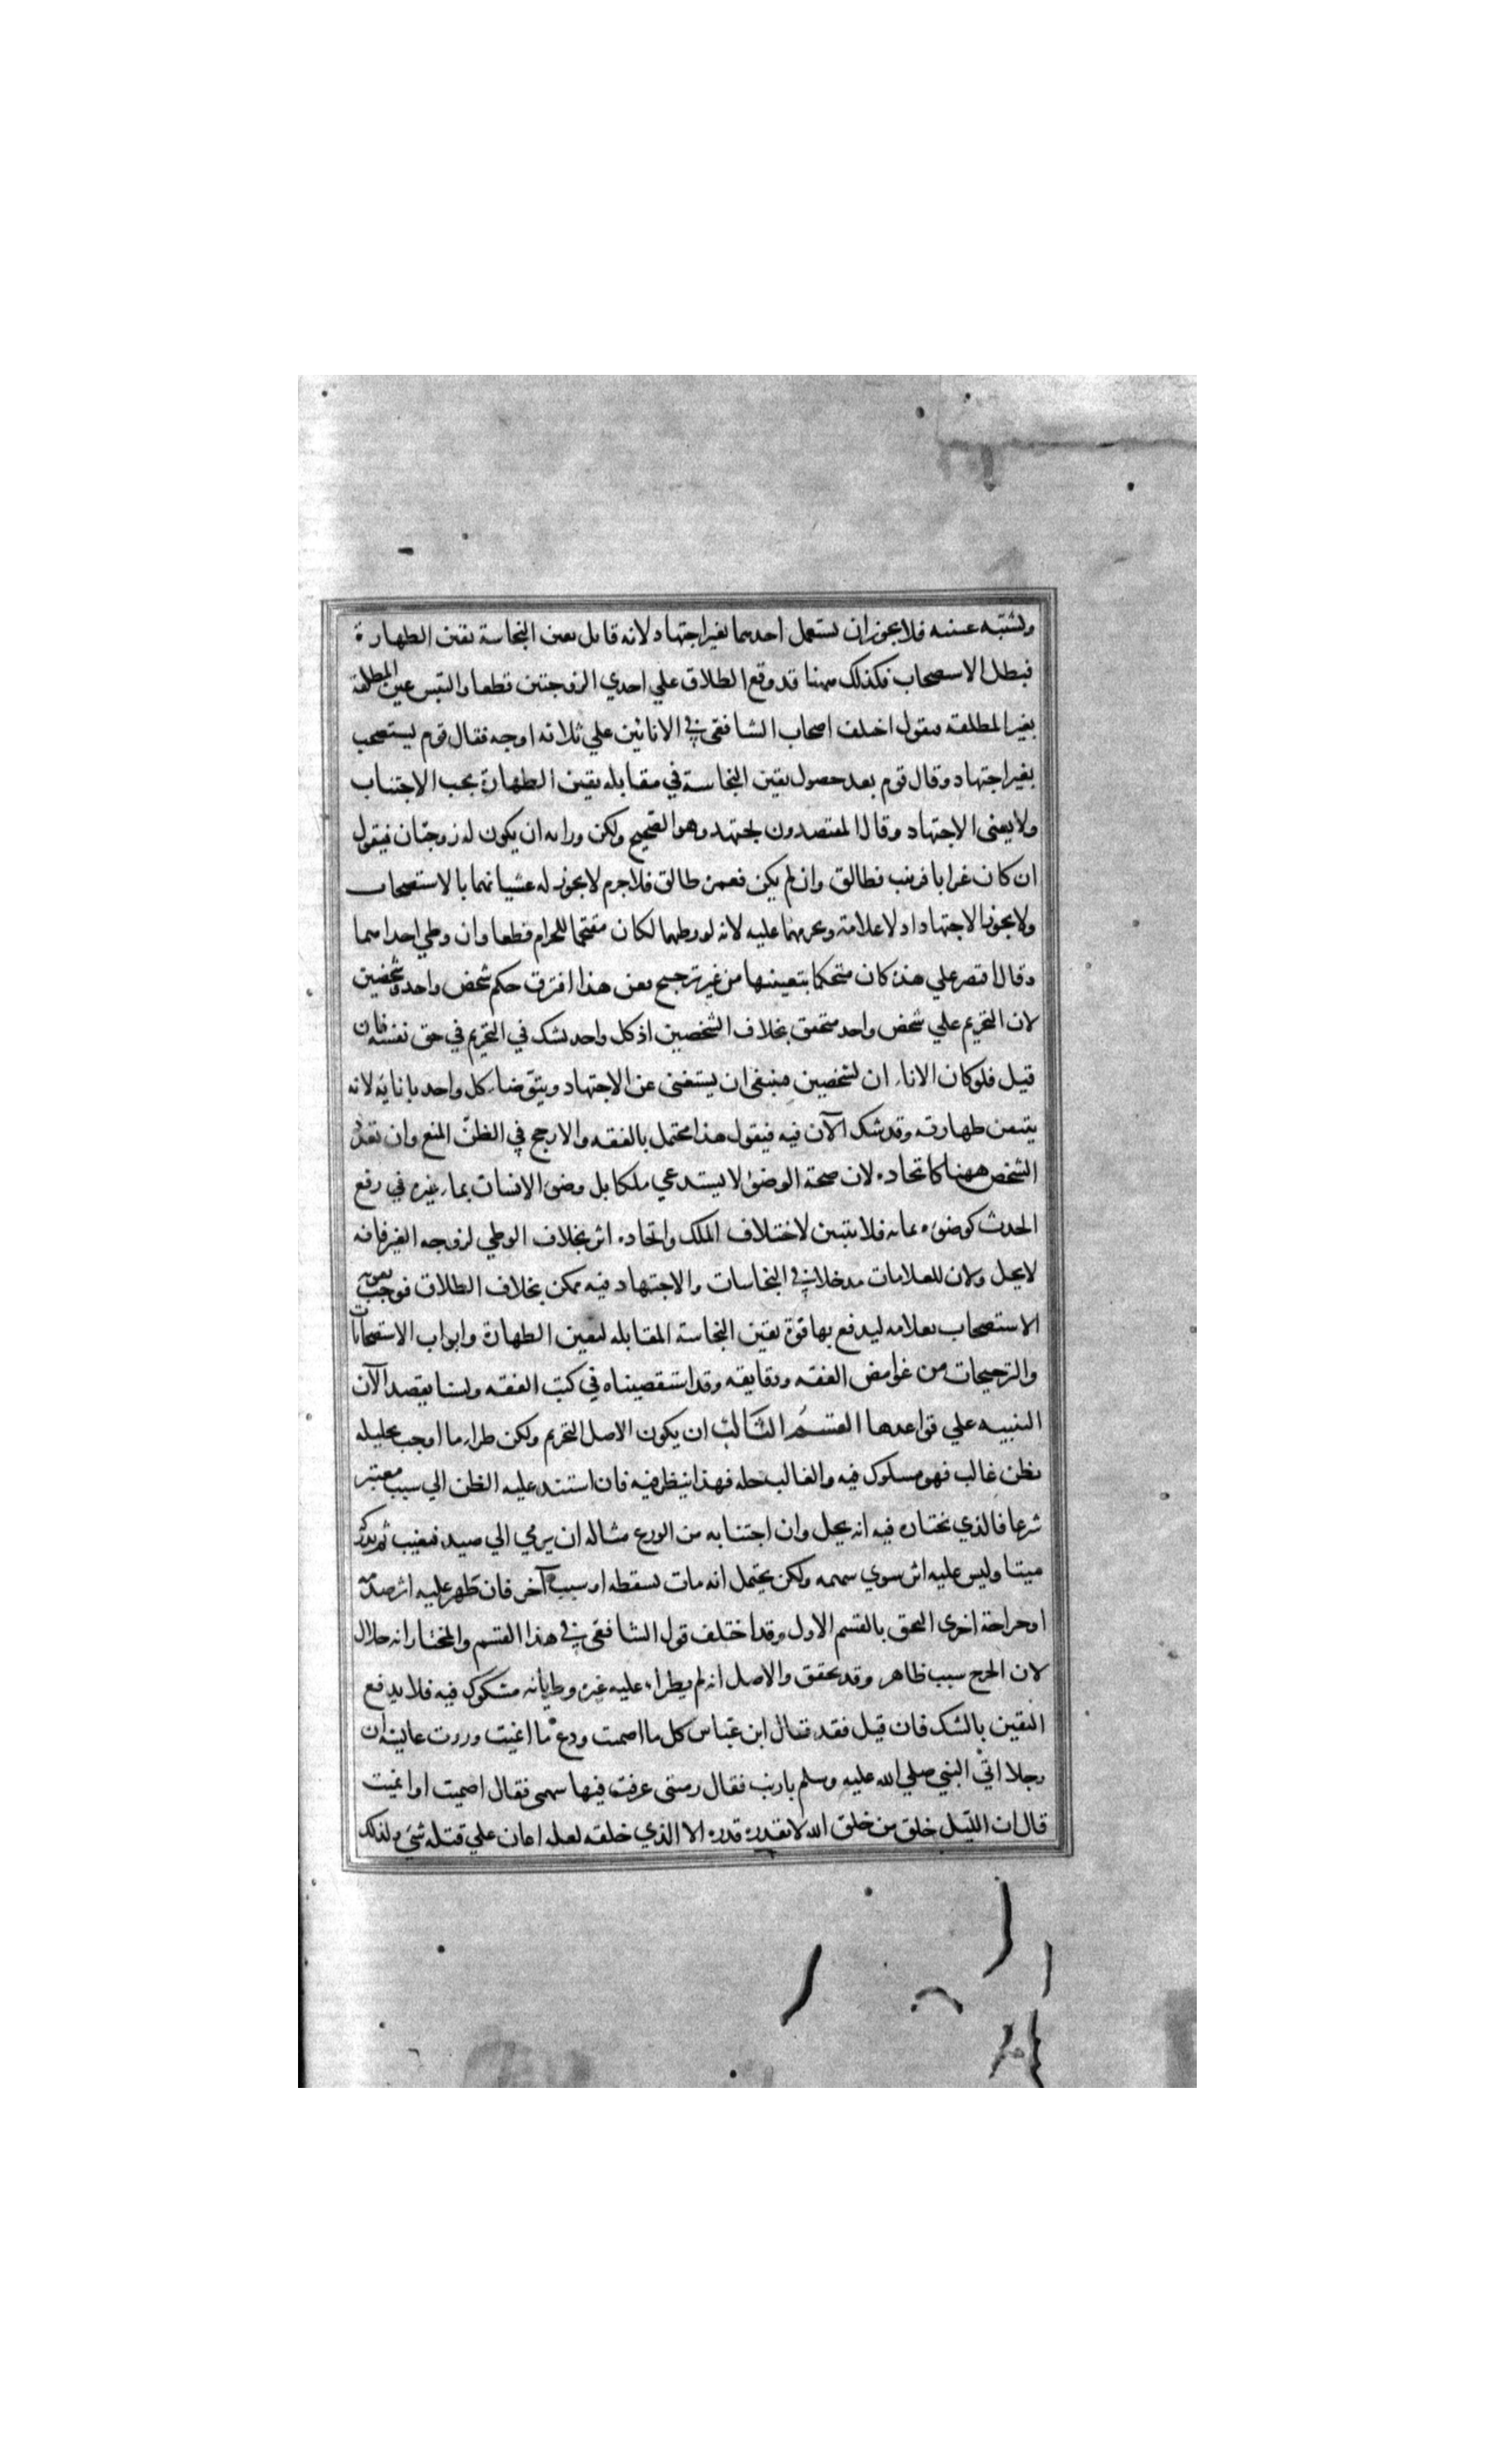 ويشتبه عينه فلا يجوز ان يستعمل احدهما بغير اجتهاد لانه قابل يقين النجاسة يقين الطهارة
فبطل الاستصحاب فكذلك ههنا قد وقع الطلاق علي احدي الزوجتين قطعا والتبس عين المطلقة
بغير المطلقة فنقول اختلف اصحاب الشافعى في الانائين علي ثلاثه اوجه فقال قوم يستصحب
بغير اجتهاد وقال قوم بعد حصول يقين النجاسة في مقابله يقين الطهارة يجب الاجتناب
ولا يغنى الاجتهاد وقال المقتصدون يجتهد وهو الصحيح ولكن وزانه ان يكون له زوجتان فيقول
ان كان غرابا فزينب طالق وان لم يكن فعمرة طالق فلا جرم لا يجوز له غشيانهما بالاستصحاب
ولا يجوز الاجتهاد اذ لا علامة ونحرمهما عليه لانه لو وطيهما لكان مقتحما للحرام قطعا وان وطي احداهما
وقال اقتصر علي هذه كان متحكما بتعيينها من غير ترجيح ففى هذا افترق حكم شخص واحد وشخصين
لان التحريم علي شخص واحد متحقق بخلاف الشخصين اذ كل واحد شك في التحريم في حق نفسه فان
قيل فلو كان الاناءان لشخصين فينبغى ان يستغنى عن الاجتهاد ويتوضاء كل واحد بانايه لانه
يتيقن طهارته وقد شك الآن فيه فيقول هذا محتمل بالفقه والارجح في الظن المنع وان تعدد
الشخص ههنا كاتحاده لان صحة الوضوء لا يستدعي ملكا بل وضوء الانسان بماء غيره في رفع
الحدث كوضوءه بمائه فلا يتبين لاختلاف الملك واتحاده اثر بخلاف الوطي لزوجه الغير فانه
لا يحل ولان للعلامات مدخلا في النجاسات والاجتهاد فيه ممكن بخلاف الطلاق فوجب تقوية
الاستصحاب بعلامه ليدفع بها قوة يقين النجاسة المقابله ليقين الطهارة وابواب الاستصحابات
والترجيحات من غوامض الفقه ودقايقه وقد استقصيناه في كتب الفقه ولسنا بقصد الآن
التنبيه علي قواعدها القسم الثالث ان يكون الاصل التحريم ولكن طراء ما اوجب تحليله
بظن غالب فهو مسلوك فيه والغالب حله فهذا ينظر فيه فان استند عليه الظن الي سبب معتبر
شرعا فالذي نختاره فيه انه يحل وان اجتنابه من الورع مثاله ان يرمي الي صيد فيغيب ثم يدركه
ميتا وليس عليه اثر سوي سهمه ولكن يحتمل انه مات بسقطه او سبب آخر فان ظهر عليه اثر صدمه
او جراحة اخرى التحق بالقسم الاول وقد اختلف قول الشافعى في هذا القسم والمختار انه حلال
لان الجرح سبب ظاهر وقد تحقق والاصل انه لم يطراء عليه غيره وطريانه مشكوك فيه فلا يدفع
اليقين بالشك فان قيل فقد قال ابن عباس كل ما اصميت ودع ما انميت وروت عايشه ان
رجلا اتي النبي صلي الله عليه وسلم بارنب فقال رميتى عرفت فيها سهمى فقال اصميت او انميت
قال ان الليل خلق من خلق الله لا يقدره قدره الا الذي خلقه لعله اعان علي قتله شئ وكذلك